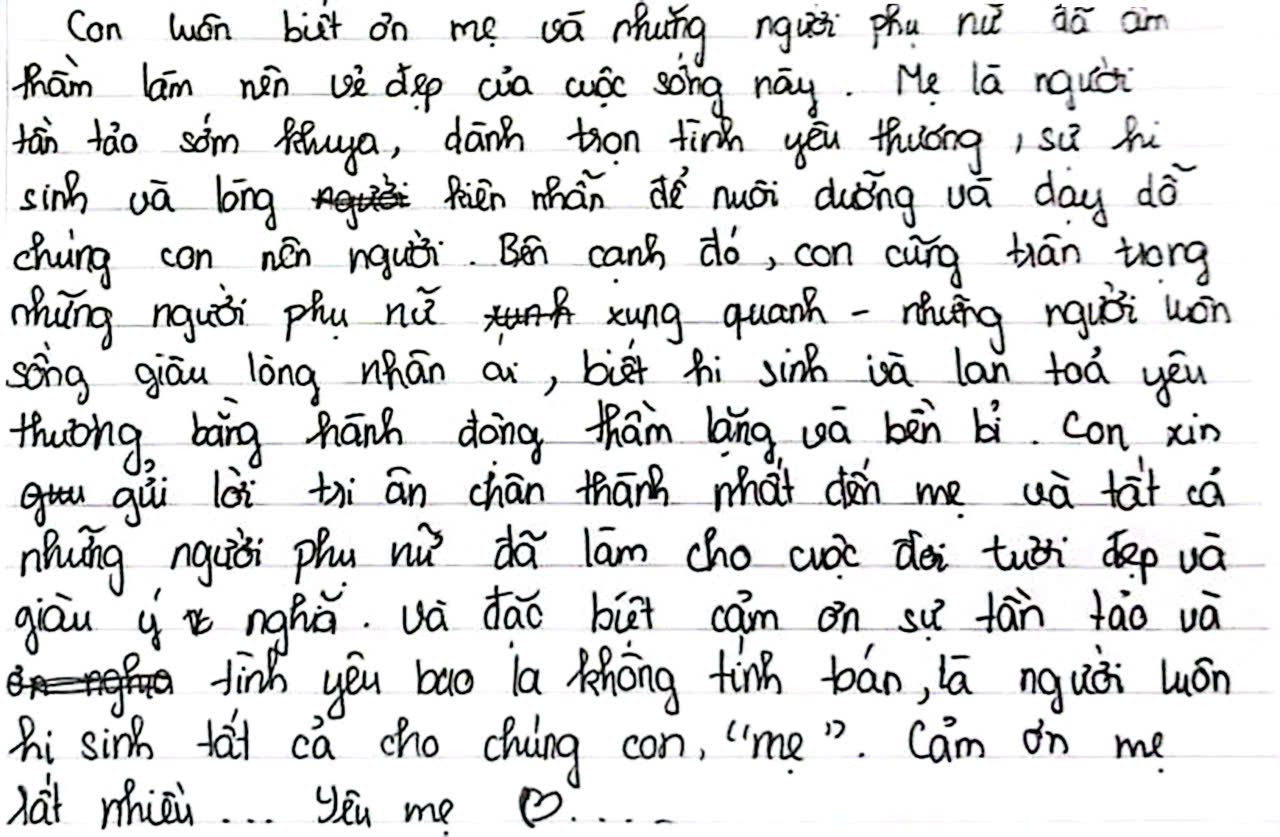 Con luôn biết ơn mẹ và những người phụ nữ đã âm
thầm làm nên vẻ đẹp của cuộc sống này. Mẹ là người
tần tảo sớm khuya, dành trọn tình yêu thương, sự hi
sinh và lòng người kiên nhẫn để nuôi dưỡng và dạy dỗ
chúng con nên người. Bên cạnh đó, con cũng trân trọng
những người phụ nữ xunh xung quanh - những người luôn
sống giàu lòng nhân ái, biết hi sinh và lan toả yêu
thương bằng hành động thầm lặng và bền bỉ. Con xin
gửi lời tri ân chân thành nhất đến mẹ và tất cả
những người phụ nữ đã làm cho cuộc đời tươi đẹp và
giàu ý nghĩa. Và đặc biệt cảm ơn sự tần tảo và
tình yêu bao la không tính toán, là người luôn
hi sinh tất cả cho chúng con, "mẹ". Cảm ơn mẹ
rất nhiều... Yêu mẹ ♡.....